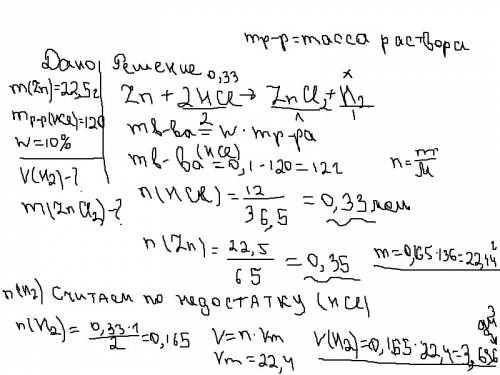 mр-р=масса раствора
Дано Решение
m(Zn)=22,5г
mр-р(HCl)=120
w=10%
V(H2)-?
m(ZnCl2)-?
0,33 x
Zn + 2HCl → ZnCl2 + H2
2 1 1
mв-ва = w · mр-ра
mв-ва(HCl)=0,1·120=12г
n=m/M
n(HCl) = 12/36,5 = 0,33 моль
n(Zn) = 22,5/65 = 0,35
m=0,165·136=22,44г
n(H2) считаем по недостатку (HCl)
n(H2) = 0,33·1/2 = 0,165
V=n·Vm
Vm=22,4
V(H2)=0,165·22,4=3,696 дм3